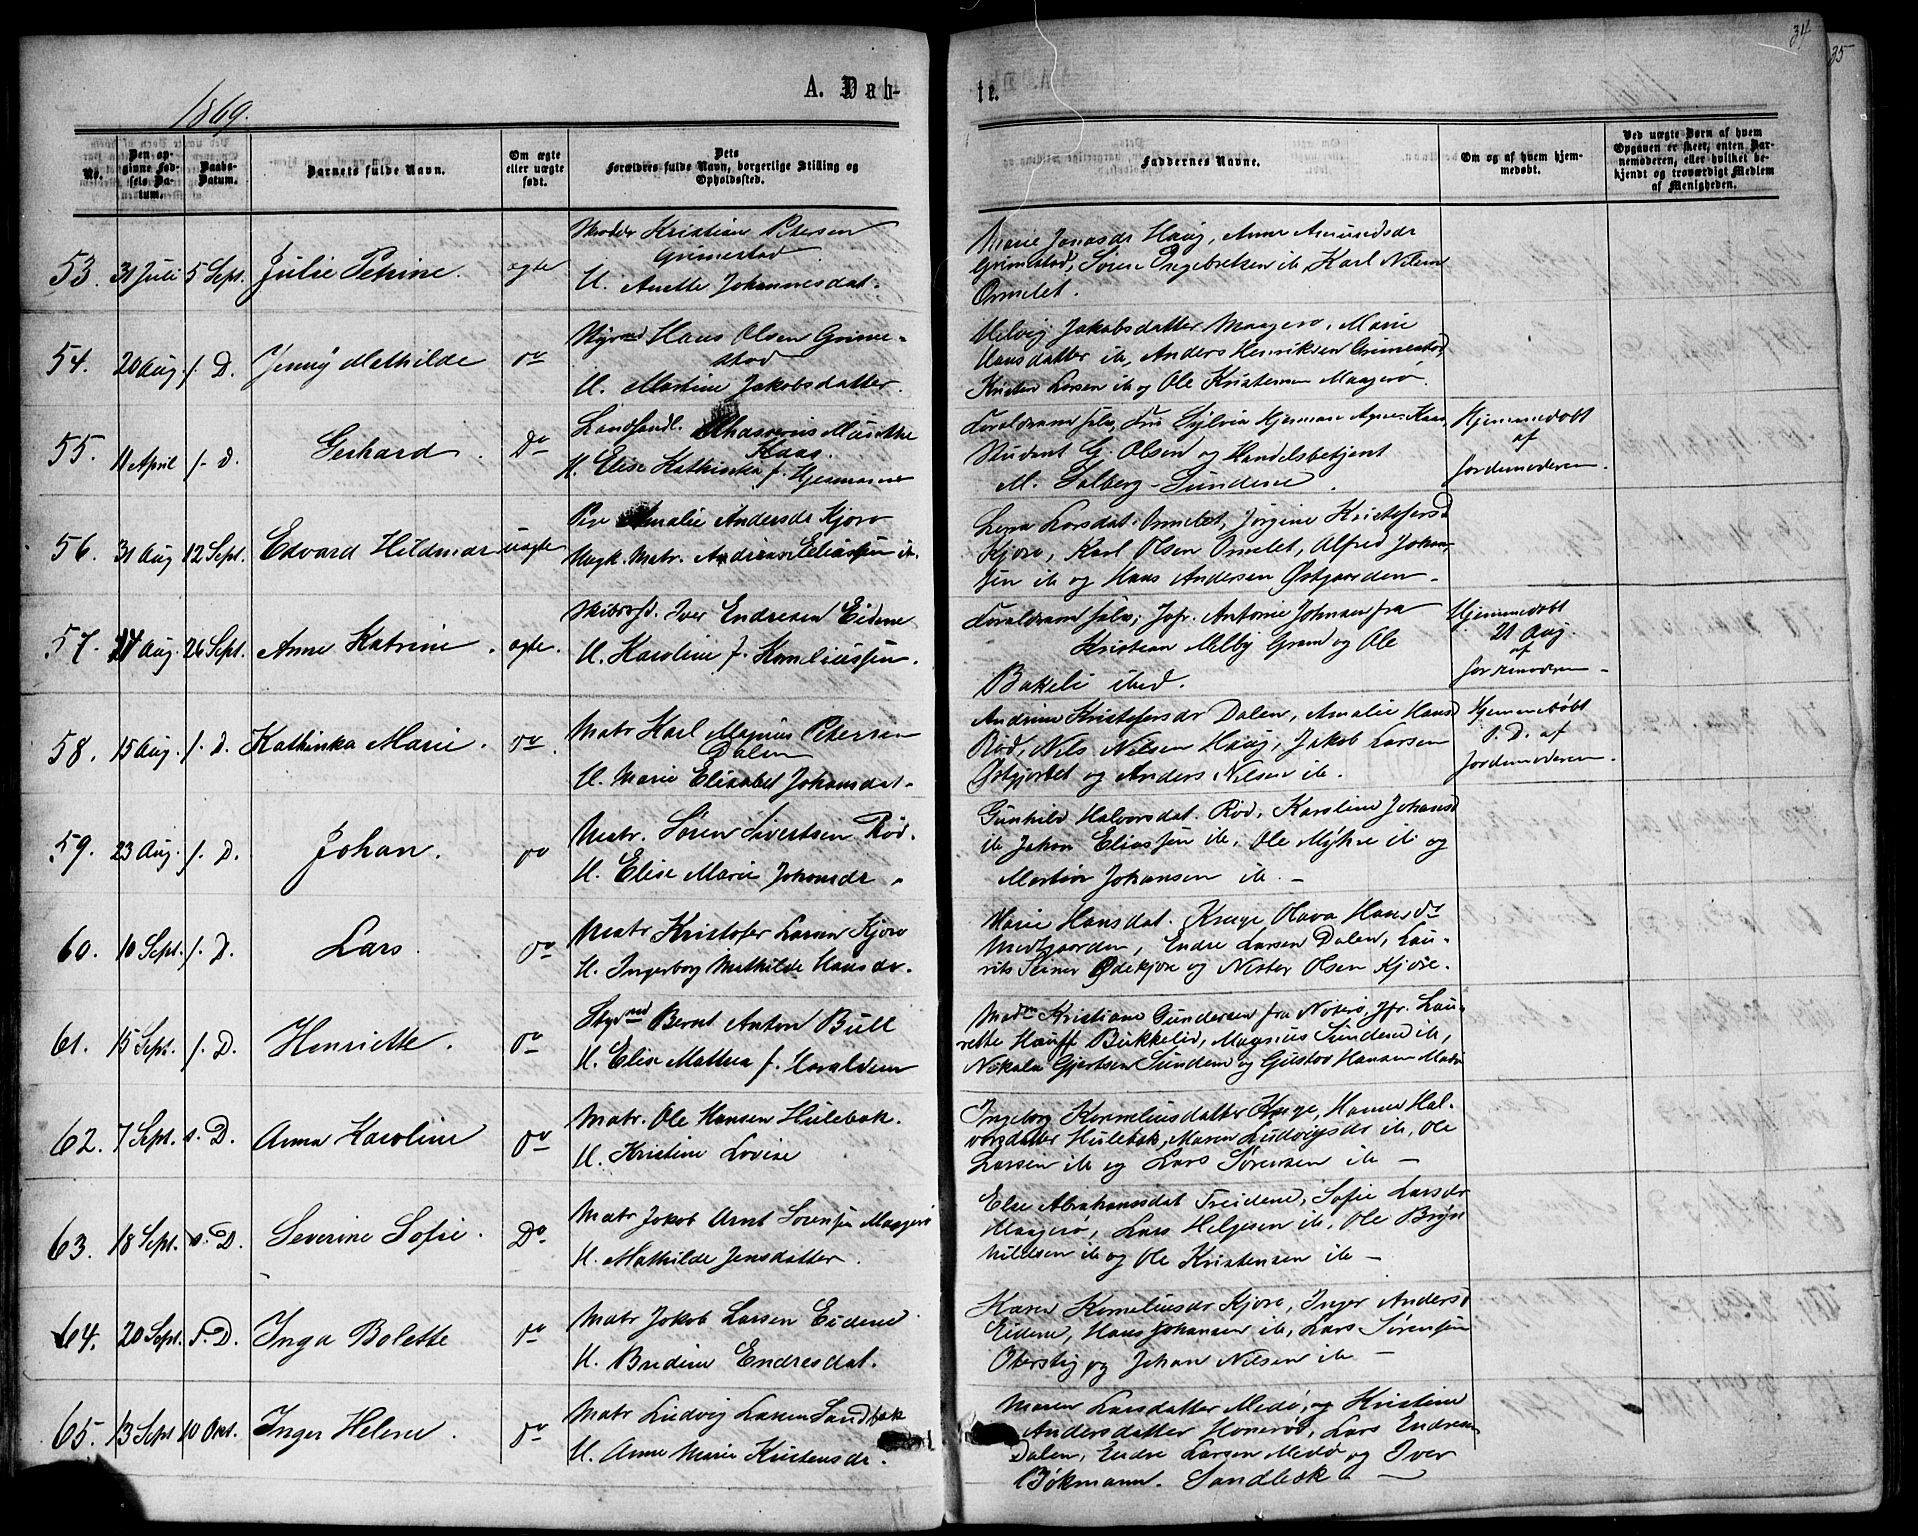 34
35
1869.
A. Døb-
te.
No.
Den op-
givne Fød-
sels Da-
tum.
Daabs-
Datum.
Barnets fulde Navn.
Om ægte
eller uægte
født.
Dets
Forældres fulde Navn, borgerlige Stilling og
Opholdssted.
Faddernes Navne.
Om og af hvem hjem-
medøbt.
Ved uægte Børn af hvem
Opgaven er skeet, enten Bar-
nemoderen, eller hvilket be-
kjendt og troværdigt Medlem
af Menigheden.
53. 31 Juli 5 Sept. Julie Petrine. ægte
Kristian Petersen
Grimestad
H. Anette Johannesdat.
Marie Jonasdr Haug, Anne Amundsdr
Grimestad, Søren Ingebretsen ib, Karl Nilsen
Ormelet.
54. 20 Aug s. D. Jenny Mathilde Do
Styrmd Hans Olsen Grime-
stad
H. Martine Jakobsdatter.
Helvig Jakobsdatter Maagerø, Marie
Hansdatter ib, Anders Henriksen Grimestad,
Kristen Larsen ib og Ole Kristensen Maagerø.
55. 11 April s. D. Gerhard. Do
Landhandl. Ahasverus
Kaas.
H. Elise Kathinka f. Hjermann
Forældrene selv, Frø Sylvia Hjermann Agnes Kaas
Student G. Olsen og Handelsbetjent
M. Salberg-Sundene.
Hjemmedøbt
af
Jordemoderen.
56. 31 Aug 12 Sept. Edvard Hildmar uægte
Pige Amalie Andersdr Kjøre
Ungk. Matr. Andreas Eliassen ib.
Lena Larsdat. Ormelet, Jørgine Kristofersd
Kjøre, Karl Olsen Ormelet, Alfred Johan-
sen ib og Hans Andersen Østgaarden.
57. 21 Aug 26 Sept. Anne Katrine. ægte.
Skibsfø. Iver Endresen Eidene
H. Karoline f. Korneliussen.
Forældrene selv, Jofr. Antonie Johnsen fra
Kristian Melby Gran og Ole
Bakeli ibid.
Hjemmedøbt
21 Aug.
af
Jordemoderen
58. 15 Aug. s. D. Kathinka Marie. Do.
Matr Karl Magnus Petersen
Dalen
H. Marie Elisabet Johansdat.
Andrine Kristofersdr Dalen, Amalie Hansd
Rød, Nils Nilsen Haug, Jakob Larsen
Østgjordet og Anders Nilsen ib.
Hjemmedøbt
s. D. af
Jordemoderen.
59. 23 Aug. s. D. Johan. Do
Matr. Søren Sivertsen Rød.
H. Elise Marie Johansdr.
Gunhild Halvorsdat. Rød, Karoline Johansd
ib Johan Eliassen ib, Ole Myhre ib og
Martin Johansen ib.
60. 10 Sept. s. D. Lars. Do
Matr Kristofer Larsen Kjøre
H. Ingeborg Mathilde Hansdr.
Marie Hansdat. Kruge Olava Hansdr
Medgaarden, Endre Larsen Dalen, Lau-
rits Ødekjøre og Nester Olsen Kjøre.
61. 15 Sept. s. D. Henriette. Do
Styrmd Bernt Anton Bull
H. Elise Mathea f. Haraldsen
Madm Kristiane Gundersen fra Nøterø, Jfr. Lau-
rette Hauff Bukkelid, Magnus Sundene ib,
Nikolai Gjertsen Sundene og Gustav Hansen
62. 7 Sept. s. D. Anna Karoline Do
Matr. Ole Hansen Hulebak.
H. Kristine Lovise
Ingeborg Korneliusdatter Kruge, Hanna Hal-
vorsdatter Hulebak, Maren Ludvigsdr ib, Ole
Larsen ib og Lars Sørensen ib
63. 18 Sept. s. D. Severine Sofie. Do
Matr Jakob Arnt Sørensen Maagerø
H. Mathilde Jensdatter.
Else Abrahamsdat Treidene, Sofie Larsdr
Maagerø, Lars Helgesen ib, Ole Bryn
hildsen ib og Ole Kristensen ib
64. 20 Sept. s. D. Inga Bolette Do
Matr Jakob Larsen Eidene
H. Bredine Endresdat.
Karen Korneliusdr Kjøre, Inger Andersd
Eidene, Hans Johansen ib, Lars Sørensen
Oterstig og Johan Nilsen ib
65. 13 Sept 10 Okt. Inger Helene. Do
Matr Ludvig Larsen Sandbæk
H. Anne Marie Kristensdr.
Maren Larsdatter Medø, og Kristine
Andersdatter Hønerød, Lars Endresen
Dalen, Endre Larsen Medø og Iver
Bøkmann. Sandbæk